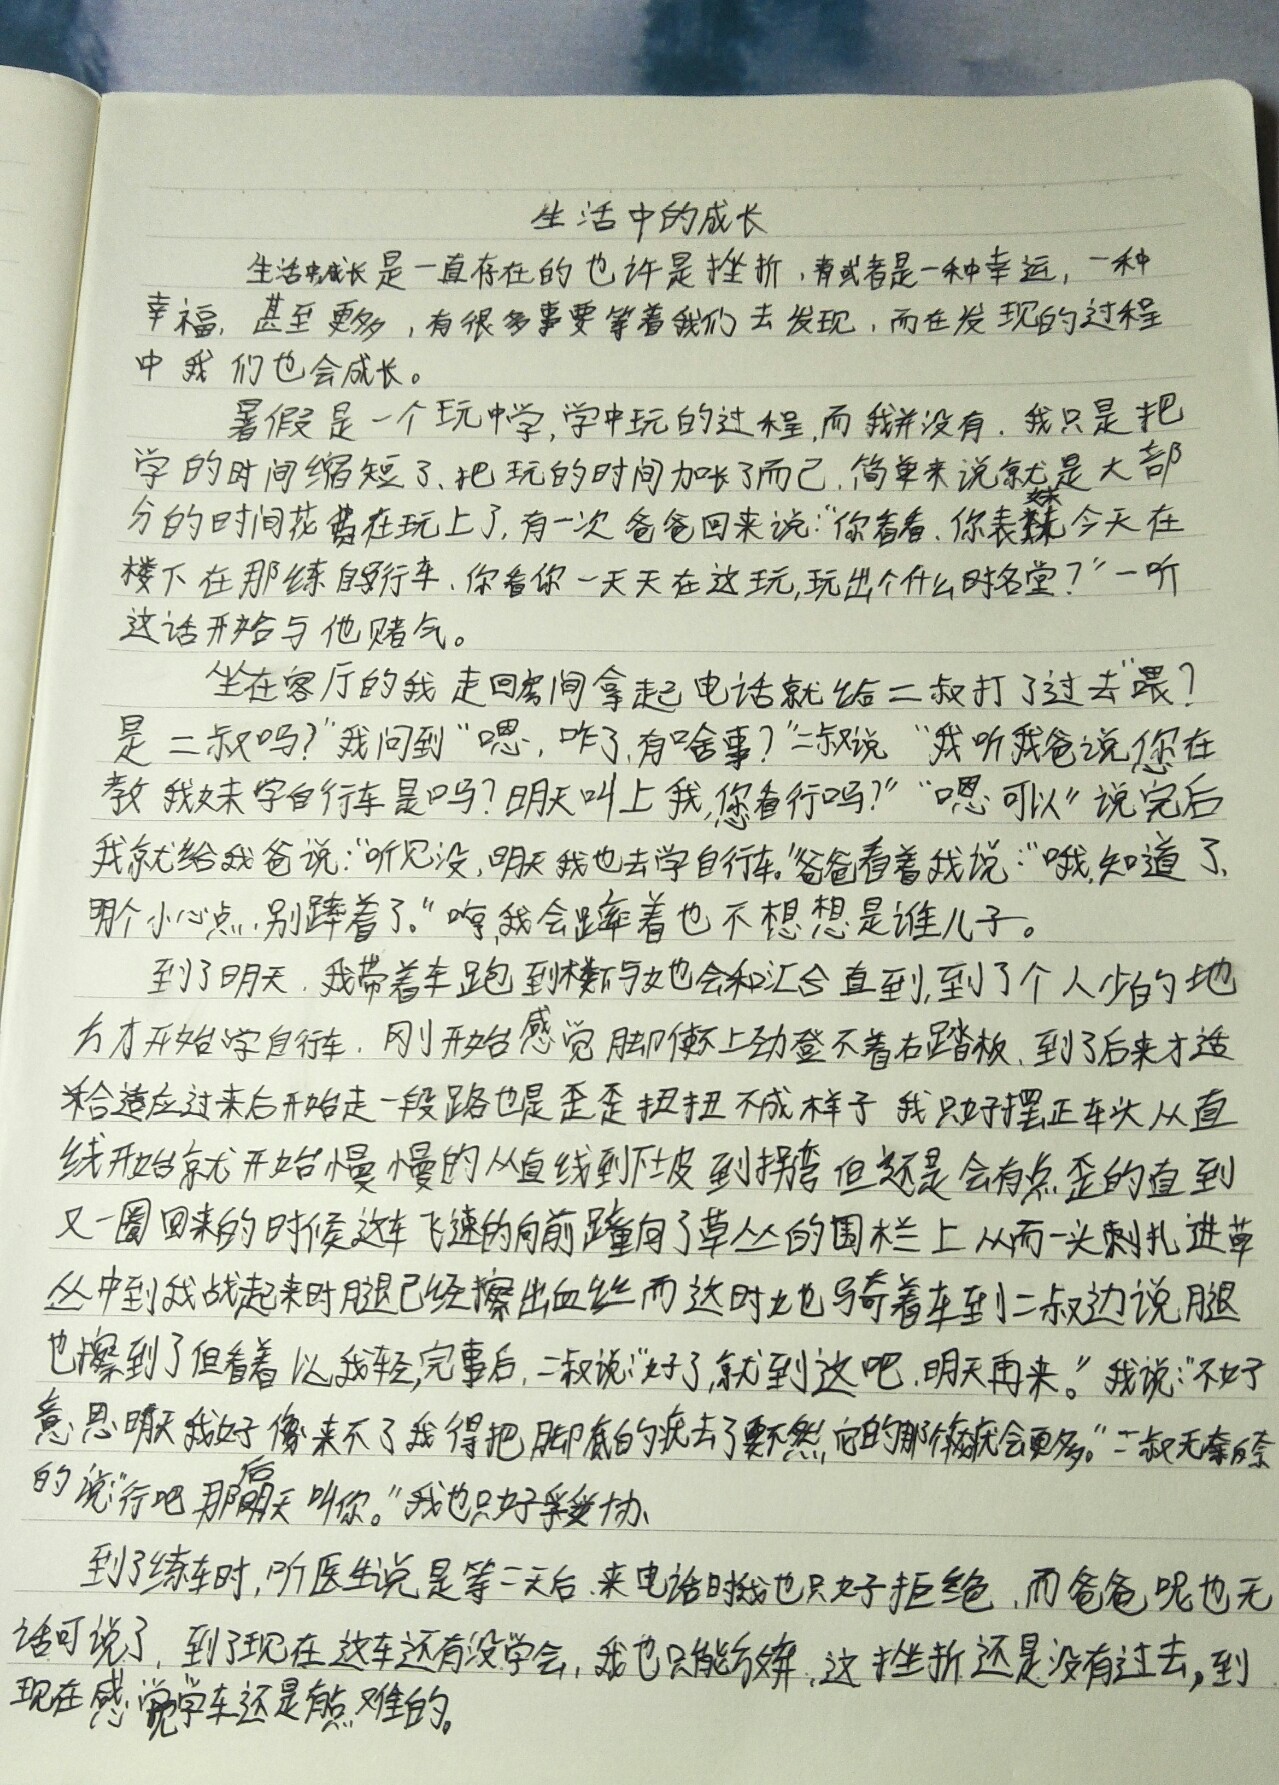 生活中的成长
生活中成长是一直存在的也许是挫折，有或者是一种幸运，一种
幸福，甚至更多，有很多事要等着我们去发现，而在发现的过程
中我们也会成长。
暑假是一个玩中学，学中玩的过程，而我并没有，我只是把
学的时间缩短了、把玩的时间加长了而已，简单来说就是大部
分的时间花费在玩上了，有一次爸爸回来说：“你看看、你表妹今天在
楼下在那练自行车、你看你一天天在这玩，玩出个什么时名堂？”一听
这话开始与他赌气。
坐在客厅的我走回房间拿起电话就给二叔打了过去“喂？
是二叔吗？”我问到“嗯，咋了，有啥事？”二叔说“我听我爸说，您在
教我妹学自行车是吗？明天叫上我，您看行吗？”“嗯可以”说完后
我就给我爸说：“听见没，明天我也去学自行车。”爸爸看着我说：“哦，知道了、
明个小心点、别蹿着了。”哼，我会蹿着也不想想是谁儿子。
到了明天、我带着车跑到楼下与她会和汇合直到，到了个人少的地
方才开始学自行车、刚开始感觉脚使不上劲登不着右踏板、到了后来才适
适应过来后开始走一段路也是歪歪扭扭不成样子我只好摆正车头从直
线开始就开始慢慢的从直线到下坡到拐弯但还是会有点歪的直到
又一圈回来的时候这车飞速的向前撞向了草丛的围栏上从而一头刺扎进草
丛中到我战起来时腿已经擦出血丝而这时她骑着车到二叔边说腿
也擦到了但看着以我轻，完事后，二叔说：“好了，就到这吧、明天再来。”我说：“不好
意思明天我好像来不了我得把脚底的疣去了要不然，它的那个会更多。”二叔无奈
的说：“行吧那后天叫你。”我也只好妥协、
到了练车时，听医生说是等二天后、来电话时我也只好拒绝、而爸爸呢也无
话可说了，到了现在这车还有没学会，我也只能放弃、这挫折还是没有过去，到
现在感觉学车还是有点难的。